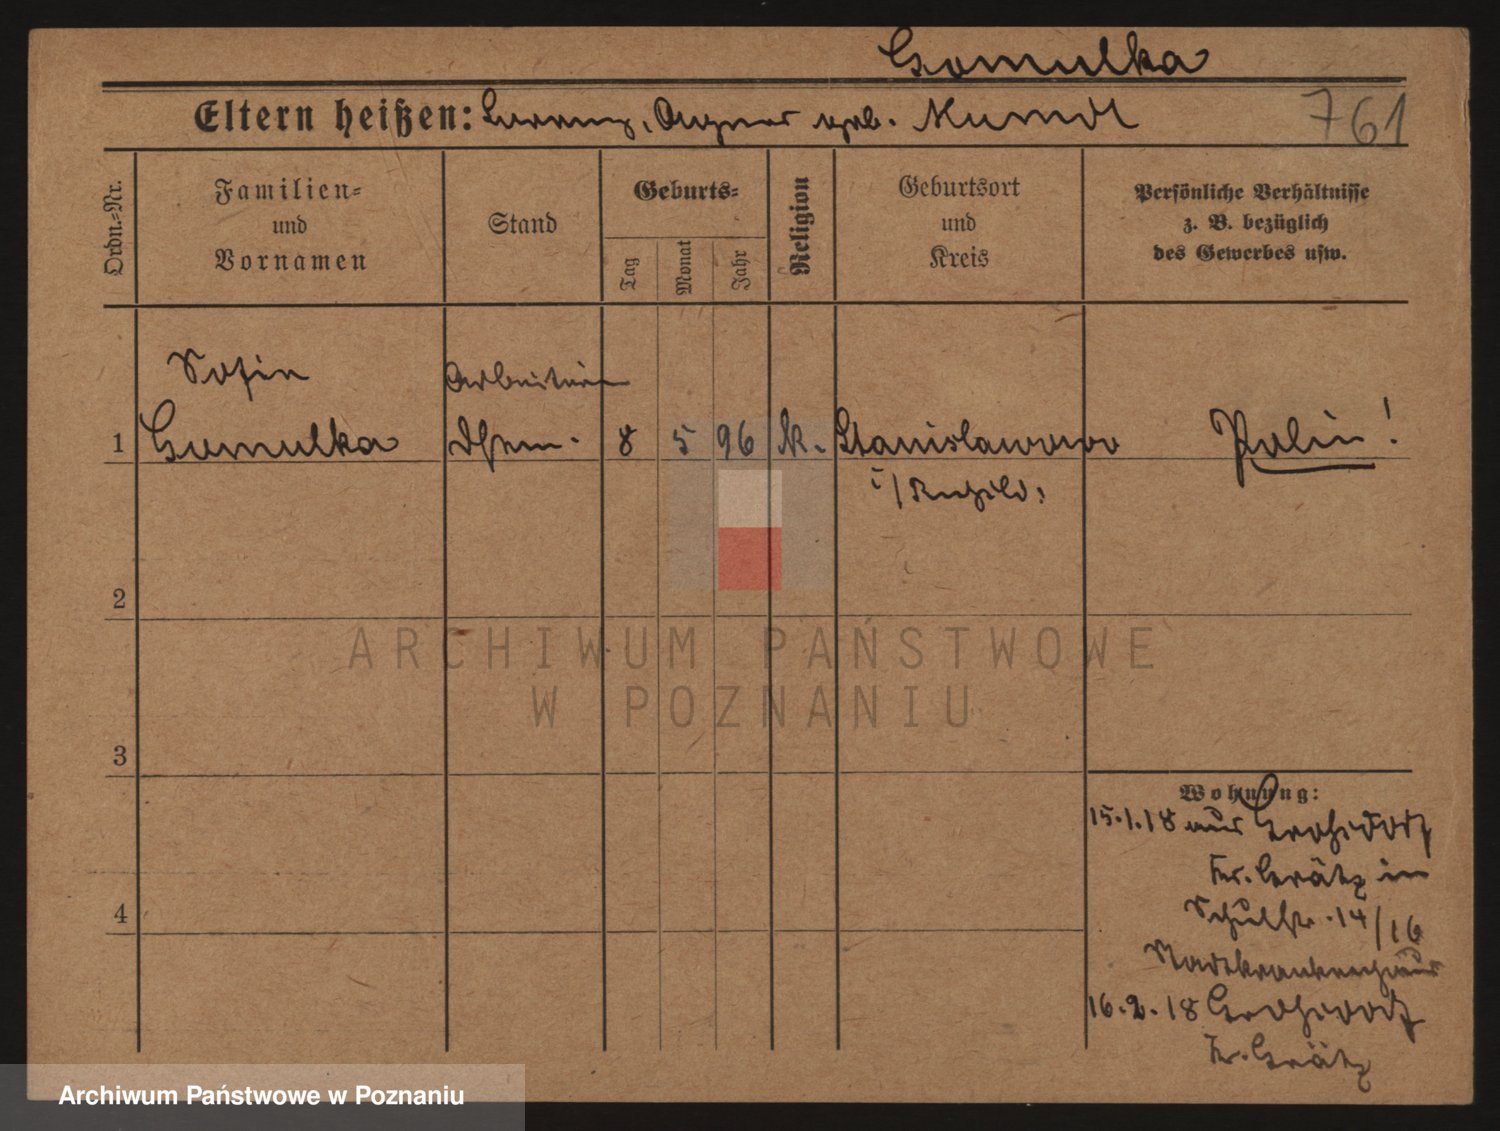 Gomulka
Eltern heißen: Lorenz, Agnes geb. Mundt
761
Ordn.-Nr.
Familien- und Vornamen
Stand
Geburts-
Tag
Monat
Jahr
Religion
Geburtsort und Kreis
Persönliche Verhältnisse
z. B. bezüglich
des Gewerbes usw.
Sofia Arbeiterin
1 Gomulka 8 5 96 k. Stanislawowo Polin!
i/
2
ARCHIWUM PAŃSTWOWE
W POZNANIU
3
Wohnung:
15.1.18 aus
Kr. Grätz in
Schulstr. 14/16
Stadtkrankenhaus
4
16.2.18
Kr. Grätz
Archiwum Państwowe w Poznaniu